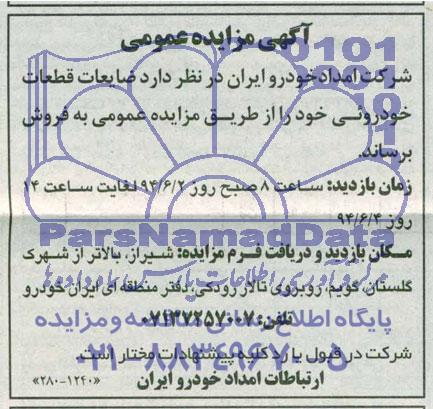 آگهی مزایده عمومی
شرکت امداد خودرو ایران در نظر دارد ضایعات قطعات
خودروئی خود را از طریق مزایده عمومی به فروش
برساند.
زمان بازدید: ساعت ۸ صبح روز ۹۴/۶/۲ لغایت ساعت ۱۴
روز ۹۴/۶/۴
ParsNamadData
مکان بازدید و دریافت فرم مزایده: شیراز، بالاتر از شهرک
گلستان، کویم، روبروی تالار رودکی، دفتر منطقه ای ایران خودرو
تلفن: ۰۷۱۳۷۲۵۷۰۰۷
پایگاه اطلاع رسانی مناقصه و مزایده
شرکت در قبول یا رد کلیه پیشنهادات مختار است.
۰۲۱-۸۸۳۴۹۶۷۰-۵
ارتباطات امداد خودرو ایران
«۲۸۰-۱۲۴۰»